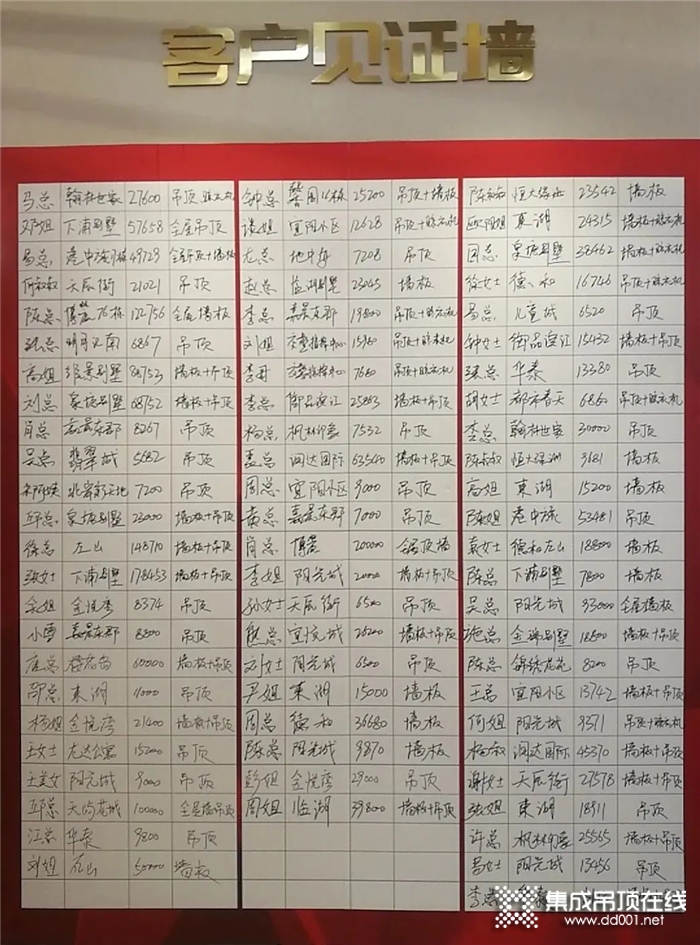 客户见证墙
马总 翰林世家 27600 吊顶
邓姐 下浦别墅 57658 全屋吊顶
易总 49729
何叔叔 天辰街 21021 吊顶
陈总 76栋 122756 全屋墙板
张总 6867 吊顶
高姐 别墅 墙板+吊顶
刘总 别墅 68752 墙板+吊顶
肖总 嘉景东郡 8267 吊顶
吴总 翡翠城 5682 吊顶
7200 吊顶
邱总 别墅 23000 墙板+吊顶
徐总 左山 148710 墙板+吊顶
张女士 下浦别墅 178453 墙板+吊顶
余姐 金悦湾 8374 吊顶
小雪 嘉景东郡 8800 吊顶
60000 墙板+吊顶
邵总 東湖 11000 吊顶
杨姐 金悦湾 21400 墙板+吊顶
王女士 龙达公寓 15200 吊顶
王美女 阳光城 9000 吊顶
邱总 天尚龙城 100000
江总 华泰 9800 吊顶
刘姐 左山 50000 墙板
钟总 25200 吊顶+墙板
谌姐 宜阳小区 12628 吊顶+晾衣机
尤总 地中海 7208 吊顶
赵总 临湖别墅 23045 墙板
李总 嘉景东郡 19800 吊顶+晾衣机
刘姐 指挥中心 15960 吊顶+晾衣机
李哥 指挥中心 7680 吊顶+晾衣机
李总 御品滨江 25863 墙板+吊顶
杨总 枫林印象 7532 吊顶
润达国际 63540 墙板+吊顶
周总 宜阳小区 9000 吊顶
黄总 嘉景东郡 7000 吊顶
肖总 20000
李姐 阳光城 20000 墙板+吊顶
孙女士 天辰街 6500 吊顶
熊总 宜悦城 26200 墙板+吊顶
刘女士 阳光城 6500 吊顶
尹姐 東湖 15000 墙板
周总 德和 36680 墙板
陈总 阳光城 9870 墙板
彭姐 金悦湾 29000 吊顶
周姐 临湖 39800 墙板+吊顶
陈叔叔 恒大绿洲 23542 墙板
欧阳姐 東湖 24315 墙板+晾衣机
周总 别墅 38462 墙板+晾衣机
徐女士 德和 16746 吊顶+晾衣机
易总 儿童城 6520 吊顶
钟女士 御品滨江 15432 墙板+吊顶
华泰 13380 吊顶
胡女士 都市春天 6860 吊顶+晾衣机
李总 翰林世家 30000 吊顶
陈叔叔 恒大绿洲 9681 墙板
高姐 東湖 15200 墙板
陈姐 53481 吊顶
袁女士 德和左山 18800 墙板
陈总 下浦别墅 7800 墙板
吴总 阳光城 33000 全屋墙板
施总 别墅 18500 墙板+吊顶
陈总 锦绣龙花 8200 吊顶
王总 宜阳小区 13742 墙板+吊顶
何姐 阳光城 9371 吊顶+晾衣机
杨叔 润达国际 45370 墙板+吊顶
谢女士 天辰街 27578 墙板+吊顶
张姐 東湖 18911 吊顶
许总 枫林印象 25565 墙板+吊顶
吕女士 阳光城 13456 吊顶
李总
集成吊顶在线
www.dd001.net